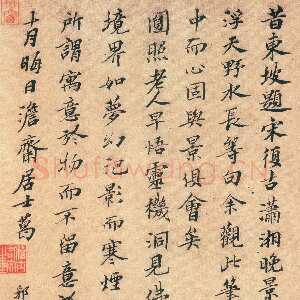 昔東坡題宋復古瀟湘晚景
浮天野水長等句余觀此筆
中而心固與景俱會矣
圓照老人早悟靈機洞見佛
境界如夢幻泡影而寒煙
所謂寓意於物而不留意
十月晦日澹齋居士葛
郄